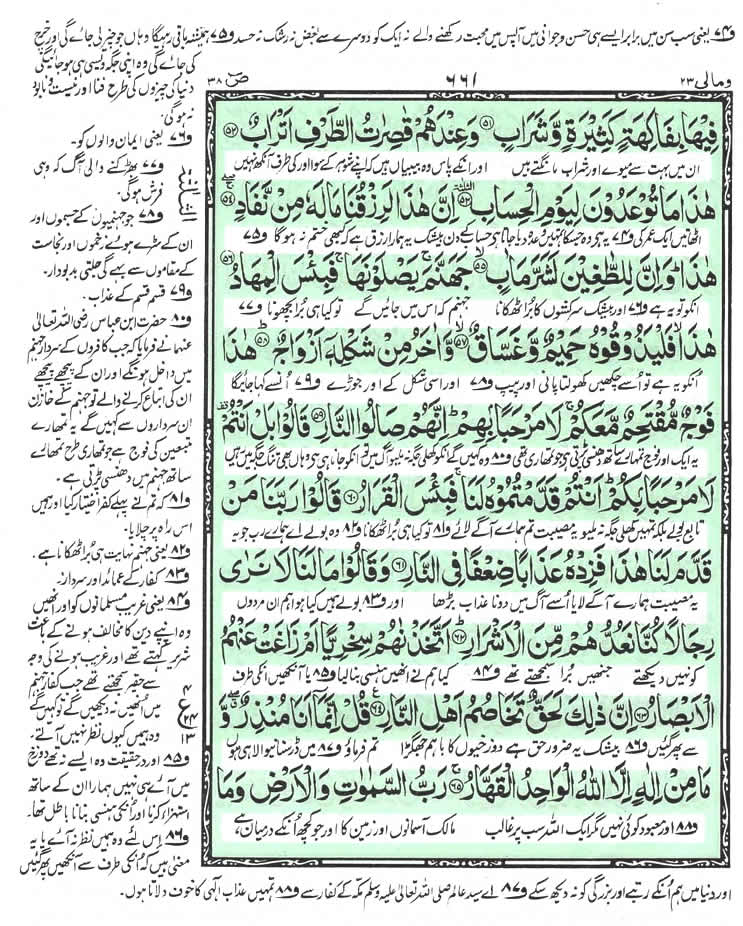 و۷۴ یعنی سب سن میں برابر ایسے ہی حسن و جوانی میں آپس میں محبت رکھنے والے نہ ایک کو دوسرے سے بغض نہ رشک نہ حسد و۷۵ ہمیشہ باقی رہیگا وہاں جو چیز لی جائے گی اور خرچ
کی جائے گی وہ اپنی جگہ ویسی ہی ہو جائیگی
دنیا کی چیزوں کی طرح فنا اور نیست و نابود
نہ ہوگی۔
ومالی ۲۳
۶۶۱
ص ۳۸
فِیْهَا بِفَاكِهَةٍ كَثِیْرَةٍ وَّ شَرَابٍ ۵۱ وَ عِنْدَهُمْ قٰصِرٰتُ الطَّرْفِ اَتْرَابٌ ۵۲
ان میں بہت سے میوے اور شراب مانگتے ہیں اور انکے پاس وہ بیبیاں ہیں کہ اپنے شوہر کے سوا اور کی طرف آنکھ نہیں
هٰذَا مَا تُوْعَدُوْنَ لِیَوْمِ الْحِسَابِ ۵۳ اِنَّ هٰذَا لَرِزْقُنَا مَا لَهٗ مِنْ نَّفَادٍ ۵۴
اٹھاتیں ایک عمر کی و۷۴ یہ ہے وہ جسکا تمہیں وعدہ دیا جاتا ہے حساب کے دن بیشک یہ ہمارا رزق ہے کہ کبھی ختم نہ ہوگا و۷۵
هٰذَا وَ اِنَّ لِلطّٰغِیْنَ لَشَرَّ مَاٰبٍ ۵۵ جَهَنَّمَ یَصْلَوْنَهَا فَبِئْسَ الْمِهَادُ ۵۶
انکو تو یہ ہے و۷۶ اور بیشک سرکشوں کا برا ٹھکانا جہنم کہ اس میں جائیں گے تو کیا ہی برا بچھونا و۷۷
هٰذَا فَلْیَذُوْقُوْهُ حَمِیْمٌ وَّ غَسَّاقٌ ۵۷ وَّ اٰخَرُ مِنْ شَكْلِهٖ اَزْوَاجٌ ۵۸ هٰذَا
انکو یہ ہے تو اسے چکھیں کھولتا پانی اور پیپ و۷۸ اور اسی شکل کے اور جوڑے و۷۹ اُنسے کہا جائیگا
فَوْجٌ مُّقْتَحِمٌ مَّعَكُمْ لَا مَرْحَبًۢا بِهِمْ اِنَّهُمْ صَالُوا النَّارِ ۵۹ قَالُوْا بَلْ اَنْتُمْ
یہ ایک اور فوج تمہارے ساتھ دھنسی پڑتی ہے جو تمہاری تھی و۸۰ وہ کہیں گے انکو کھلی جگہ نہ ملیو آگ میں تو انکو جانا ہی ہے وہاں بھی تنگ جگہ میں ہیں
لَا مَرْحَبًۢا بِكُمْ اَنْتُمْ قَدَّمْتُمُوْهُ لَنَا فَبِئْسَ الْقَرَارُ ۶۰ قَالُوْا رَبَّنَا مَنْ
تابع بولے بلکہ تمہیں کھلی جگہ نہ ملیو یہ مصیبت تم ہمارے آگے لائے و۸۱ تو کیا ہی برا ٹھکانا و۸۲ وہ بولے اے ہمارے رب جو یہ
قَدَّمَ لَنَا هٰذَا فَزِدْهُ عَذَابًا ضِعْفًا فِی النَّارِ ۶۱ وَ قَالُوْا مَا لَنَا لَا نَرٰى
یہ مصیبت ہمارے آگے لایا اُسے آگ میں دونا عذاب بڑھا اور و۸۳ بولے ہمیں کیا ہوا ہم ان مردوں
رِجَالًا كُنَّا نَعُدُّهُمْ مِّنَ الْاَشْرَارِ ۶۲ اَتَّخَذْنٰهُمْ سِخْرِیًّا اَمْ زَاغَتْ عَنْهُمُ
کو نہیں دیکھتے جنھیں برا سمجھتے تھے و۸۴ کیا ہم نے انھیں ہنسی بنا لیا و۸۵ یا آنکھیں انکی طرف
الْاَبْصَارُ ۶۳ اِنَّ ذٰلِكَ لَحَقٌّ تَخَاصُمُ اَهْلِ النَّارِ ۶۴ قُلْ اِنَّمَاۤ اَنَا مُنْذِرٌ وَّ
سے پھر گئیں و۸۶ بیشک یہ ضرور حق ہے دوزخیوں کا باہم جھگڑا تم فرماؤ و۸۷ میں ڈر سنانے والا ہی ہوں
مَا مِنْ اِلٰهٍ اِلَّا اللّٰهُ الْوَاحِدُ الْقَهَّارُ ۶۵ رَبُّ السَّمٰوٰتِ وَ الْاَرْضِ وَ مَا
و۸۸ اور معبود کوئی نہیں مگر ایک اللہ سب پر غالب مالک آسمانوں اور زمین کا اور جو کچھ اُنکے درمیان ہے
و۷۶ یعنی ایمان والوں کو۔
و۷۷ بھڑکنے والی آگ کہ وہی
فرش ہوگی۔
و۷۸ جو جہنمیوں کے جسموں اور
ان کے سڑے ہوئے زخموں اور نجاست
کے مقاموں سے بہے گی جلتی بدبودار۔
و۷۹ قسم قسم کے عذاب۔
و۸۰ حضرت ابن عباس رضی اللہ تعالیٰ
عنہما نے فرمایا کہ جب کافروں کے سردار جہنم
میں داخل ہونگے اور ان کے پیچھے پیچھے
ان کی اتباع کرنے والے تو جہنم کے خازن
ان سرداروں سے کہیں گے یہ تمھارے
متبعین کی فوج ہے جو تمھاری طرح تمھارے
ساتھ جہنم میں دھنسی پڑتی ہے۔
و۸۱ کہ تم نے پہلے کفر اختیار کیا اور ہمیں
اس راہ پر چلایا۔
و۸۲ یعنی جہنم نہایت ہی برا ٹھکانا ہے۔
و۸۳ کفار کے عمائد اور سردار۔
و۸۴ یعنی غریب مسلمانوں کو اور انھیں
وہ اپنے دین کا مخالف ہونے کے باعث
شریر کہتے تھے اور غریب ہونے کی وجہ
سے حقیر سمجھتے تھے جب کفار جہنم
میں انھیں نہ دیکھیں گے تو کہیں گے
وہ ہمیں کیوں نظر نہیں آتے۔
۴
ع
۲۴
۱۳
و۸۵ اور درحقیقت وہ ایسے نہ تھے دوزخ
میں آئے ہی نہیں ہمارا ان کے ساتھ
استہزاء کرنا اور انکی ہنسی بنانا باطل تھا۔
و۸۶ اس لئے وہ ہمیں نظر نہ آئے یا یہ
معنی ہیں کہ انکی طرف سے آنکھیں پھر گئیں
اور دنیا میں ہم اُنکے رتبے اور بزرگی کو نہ دیکھ سکے و۸۷ اے سید عالم صلی اللہ تعالیٰ علیہ وسلم مکہ کے کفار سے و۸۸ تمہیں عذاب الٰہی کا خوف دلاتا ہوں۔